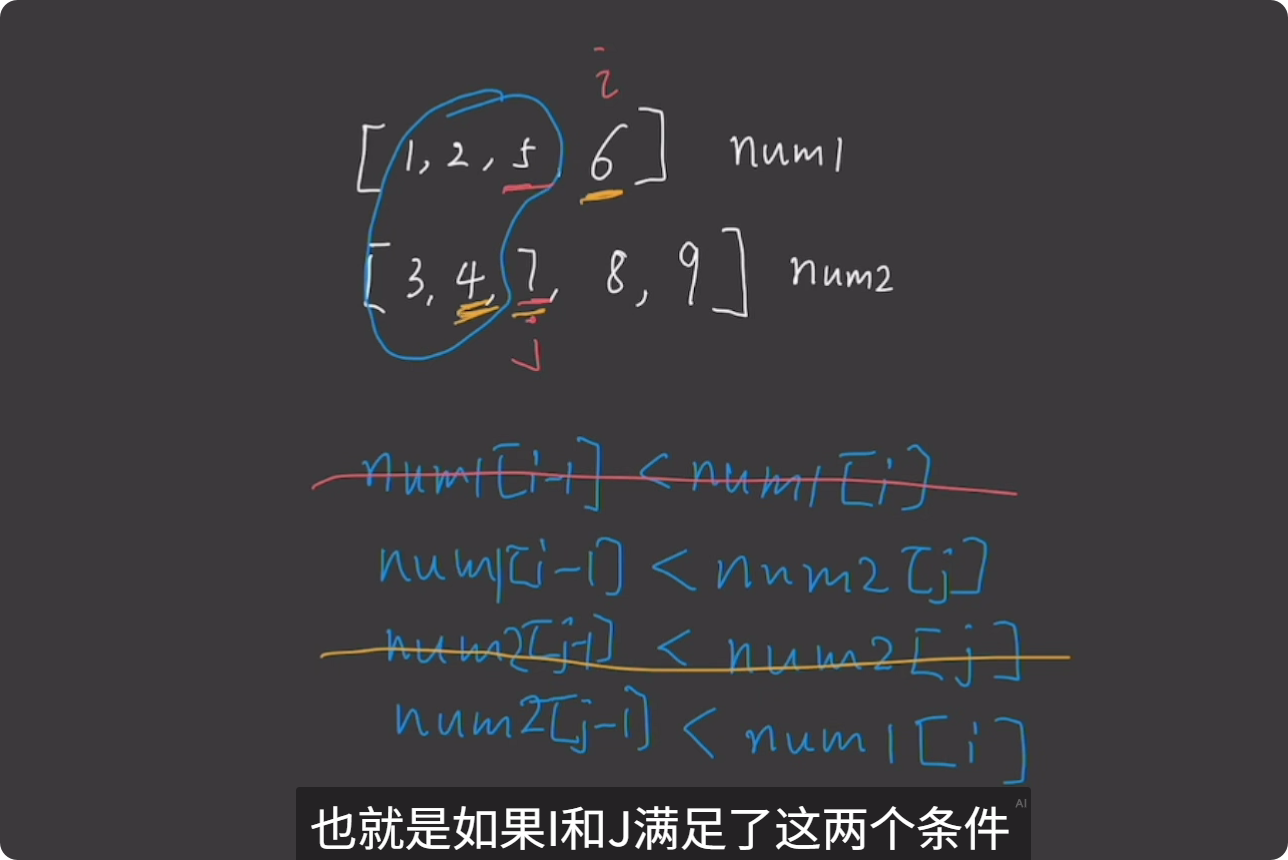 i
[1, 2, 5, 6] num1
[3, 4, 7, 8, 9] num2
j
num1[i-1] < num1[i]
num1[i-1] < num2[j]
num2[j-1] < num2[j]
num2[j-1] < num1[i]
AI
也就是如果I和J满足了这两个条件